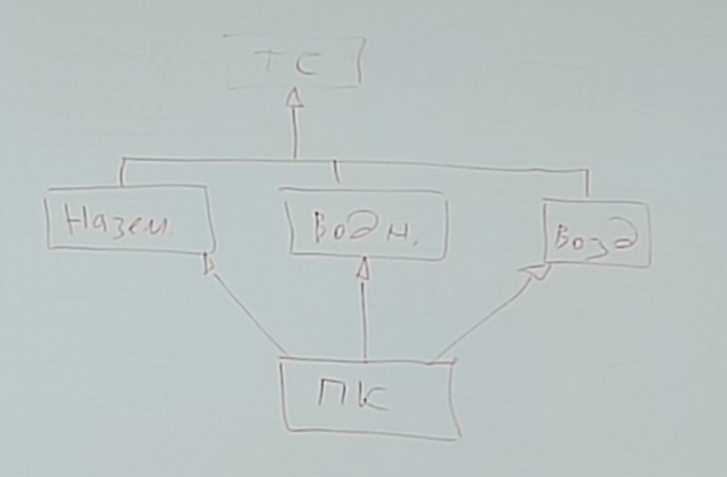 ТС
Назем.
Водн.
Возд
ПК